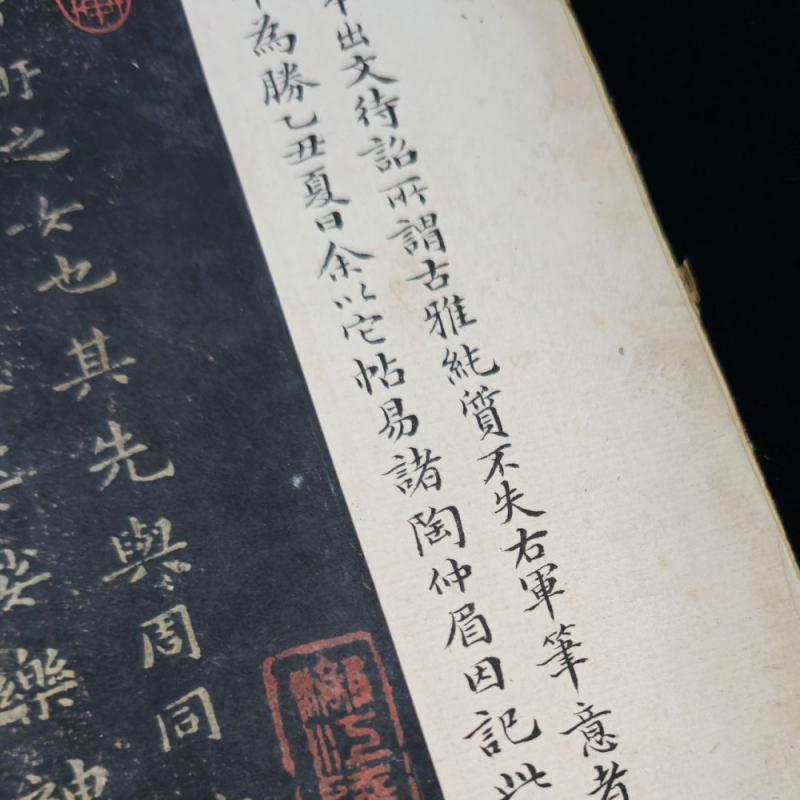 出文待詔所謂古雅純質不失右軍筆意者
為勝乙丑夏日余以它帖易諸陶仲眉因記此
也其先與周同
之次
樂神